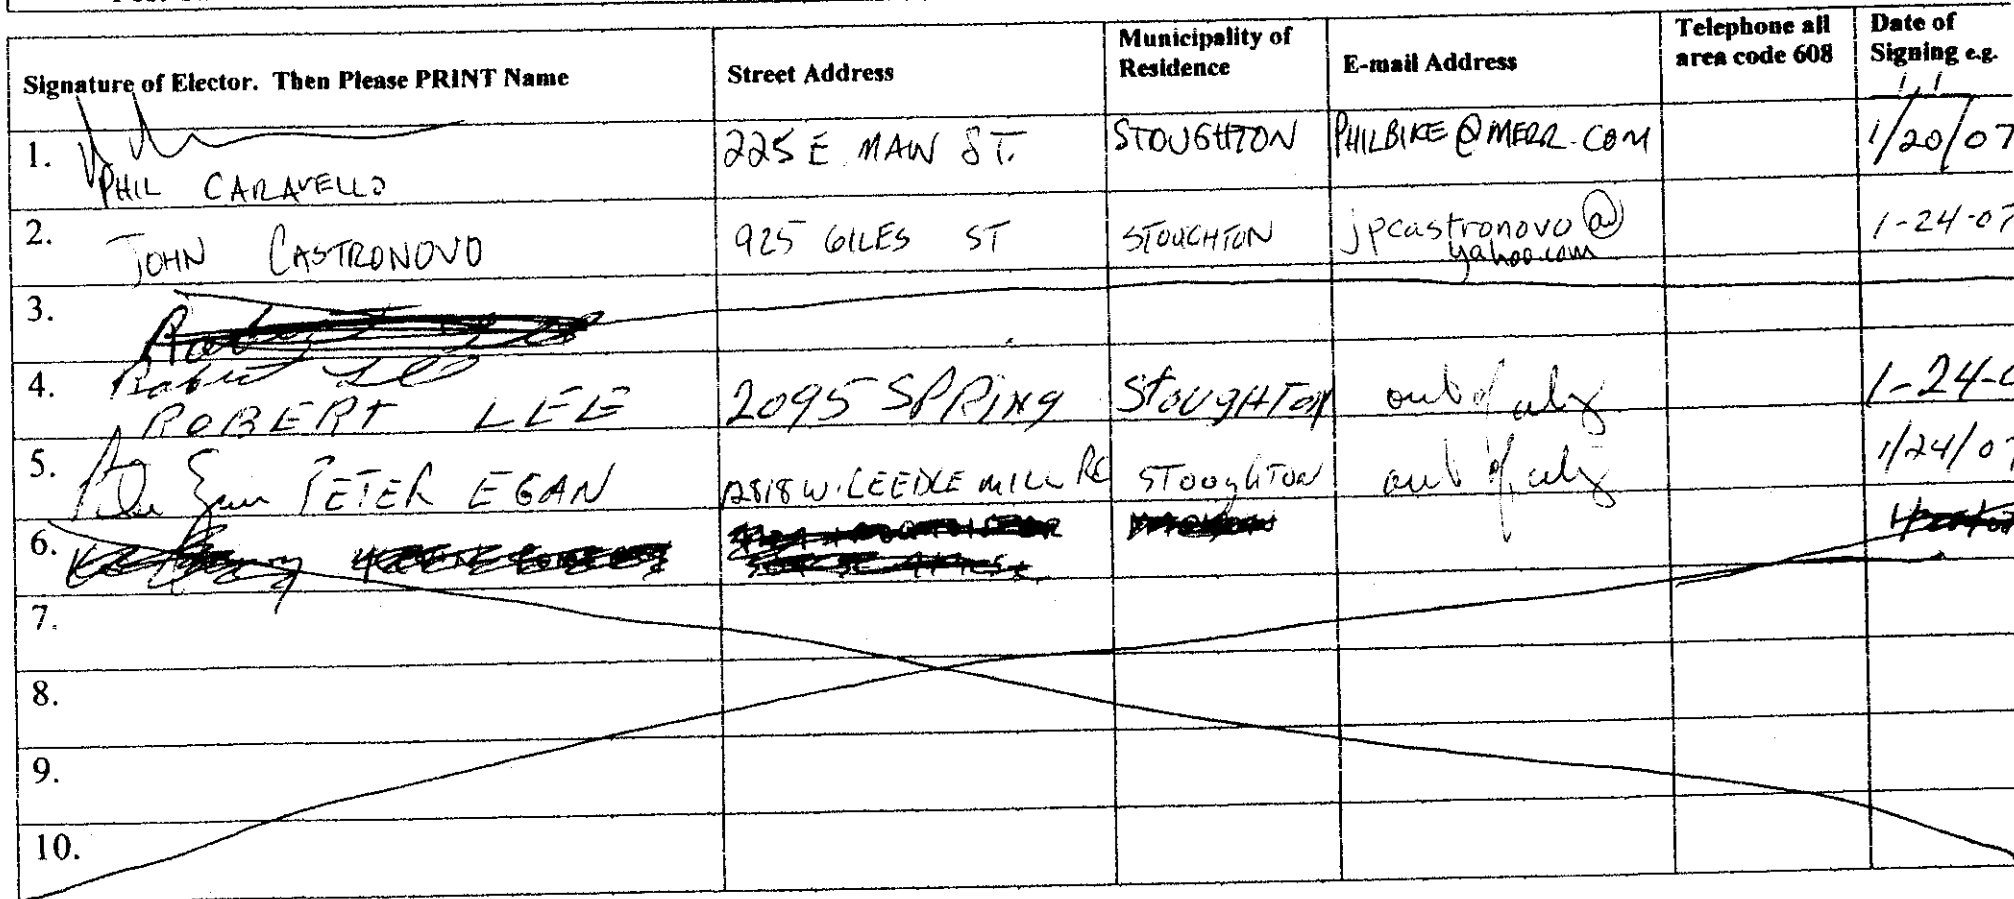 Signature of Elector. Then Please PRINT Name
Street Address
Municipality of
Residence
E-mail Address
Telephone all
area code 608
Date of
Signing e.g.
1.
PHIL CARAVELLO
225 E MAIN ST.
STOUGHTON
PHILBIKE@MERR.COM
1/20/07
2.
JOHN CASTRONOVO
925 GILES ST
STOUGHTON
jpcastronovo@
yahoo.com
1-24-07
3.
4.
Robert Lee
ROBERT LEE
2095 SPRiNg
StOUgHTON
out of city
1-24-0
5.
Peter Egan PETER EGAN
W. LEEDLE MILL RD
STOUGHTON
out of city
1/24/07
6.
7.
8.
9.
10.